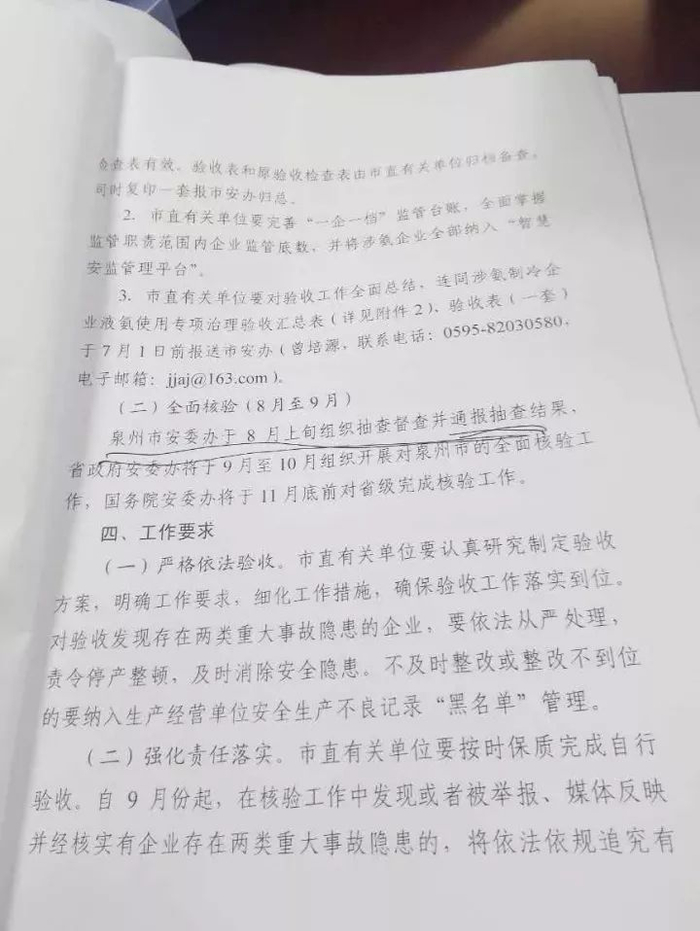 检查表有效。验收表和原验收检查表由市直有关单位归档备查。
同时复印一套报市安办归总。
2. 市直有关单位要完善“一企一档”监管台账，全面掌握
监管职责范围内企业监管底数，并将涉氨企业全部纳入“智慧
安监管理平台”。
3. 市直有关单位要对验收工作全面总结，连同涉氨制冷企
业液氨使用专项治理验收汇总表（详见附件2）、验收表（一套）
于7月1日前报送市安办（曾培源，联系电话：0595-82030580，
电子邮箱：jjaj@163.com）。
（二）全面核验（8月至9月）
泉州市安委办于8月上旬组织抽查督查并通报抽查结果，
省政府安委办将于9月至10月组织开展对泉州市的全面核验工
作，国务院安委办将于11月底前对省级完成核验工作。
四、工作要求
（一）严格依法验收。市直有关单位要认真研究制定验收
方案，明确工作要求，细化工作措施，确保验收工作落实到位。
对验收发现存在两类重大事故隐患的企业，要依法从严处理，
责令停产整顿，及时消除安全隐患。不及时整改或整改不到位
的要纳入生产经营单位安全生产不良记录“黑名单”管理。
（二）强化责任落实。市直有关单位要按时保质完成自行
验收。自9月份起，在核验工作中发现或者被举报、媒体反映
并经核实有企业存在两类重大事故隐患的，将依法依规追究有